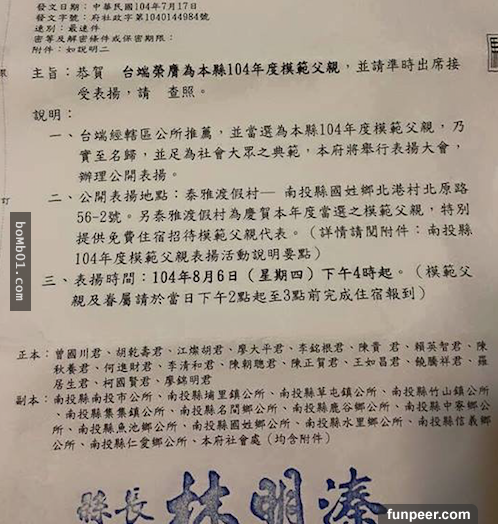 發文日期：中華民國104年7月17日
發文字號：府社政字第1040144984號
速別：最速件
密等及解密條件或保密期限：
附件：如說明二
主旨：恭賀　台端榮膺為本縣104年度模範父親，並請準時出席接
受表揚，請　查照。
說明：
一、台端經轄區公所推薦，並當選為本縣104年度模範父親，乃
實至名歸，並足為社會大眾之典範，本府將舉行表揚大會，
辦理公開表揚。
二、公開表揚地點：泰雅渡假村— 南投縣國姓鄉北港村北原路
56-2號。另泰雅渡假村為慶賀本年度當選之模範父親，特別
提供免費住宿招待模範父親代表。（詳情請閱附件：南投縣
104年度模範父親表揚活動說明要點）
三、表揚時間：104年8月6日（星期四）下午4時起。（模範父
親及眷屬請於當日下午2點起至3點前完成住宿報到）
正本：曾國川君、胡乾壽君、江燦胡君、廖大平君、李銘根君、陳貴 君、賴英智君、陳
秋養君、何進財君、李清和君、陳朝聰君、陳正賀君、王如昌君、饒騰祥君、羅
居生君、柯國賢君、廖錦明君
副本：南投縣南投市公所、南投縣埔里鎮公所、南投縣草屯鎮公所、南投縣竹山鎮公
所、南投縣集集鎮公所、南投縣名間鄉公所、南投縣鹿谷鄉公所、南投縣中寮鄉公
所、南投縣魚池鄉公所、南投縣國姓鄉公所、南投縣水里鄉公所、南投縣信義鄉
公所、南投縣仁愛鄉公所、本府社會處（均含附件）
縣長 林明溱
訂
boMb01.com
funpeer.com